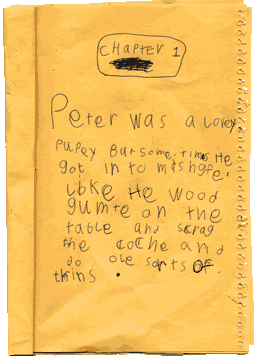 CHAPTER 1
Peter was a lovey
pupey But some times He
got in to mishgfe.
like He wood
gumte on the
table and scrag
the coche and
do ole sorts of
thins.